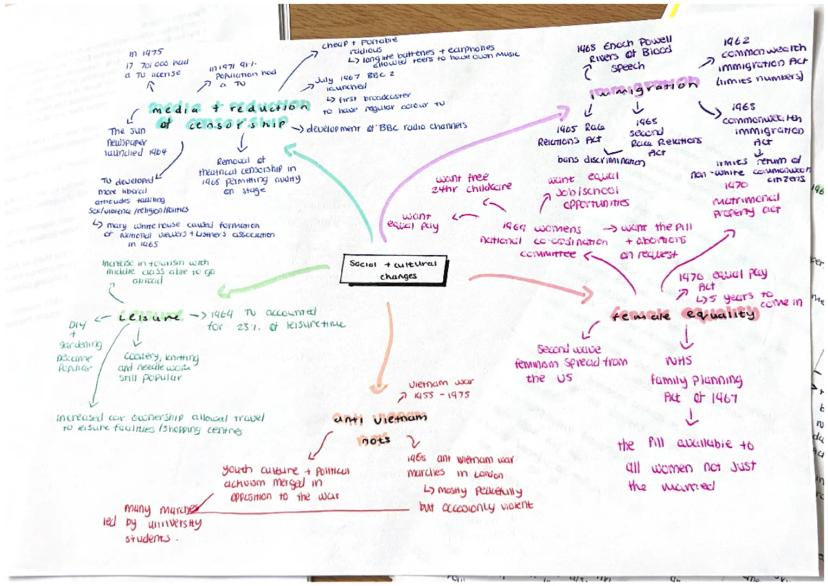 Social + cultural
changes
media + reduction
of censorship
in 1975
17 701 000 had
a TV license
in 1971 91%
population had
a TV
cheap + portable
radios
↳ long life batteries + earphones
allowed teens to have own music
July 1967 BBC 2
launched
↳ first broadcaster
to have regular colour TV
→ development of BBC radio channels
Removal of
theatrical censorship in
1968 permitting nudity
on stage
The Sun
newspaper
launched 1964
TV developed
more liberal
attitudes
sex/violence/religion/politics
↳ mary whitehouse caused formation
of national viewers + listeners association
in 1965
immigration
1968 Enoch Powell
Rivers of Blood
speech
1962
commonwealth
immigration Act
(limits numbers)
1965 Race
Relations Act
1968
second
Race Relations
Act
bans discrimination
1968
commonwealth
immigration
Act
limits return of
non-white commonwealth
citizens
female equality
1969 womens
national co-ordination
committee
want equal
pay
want free
24hr childcare
want equal
job/school
opportunities
→ want the Pill
+ abortions
on request
1970
matrimonial
Property act
1970 equal pay
Act
↳ 5 years to
come in
Second wave
feminism spread from
the US
NHS
family planning
Act of 1967
the Pill available to
all women not just
the married
Leisure
increase in tourism with
middle class able to go
abroad
→ 1964 TV accounted
for 23% of leisure time
DIY
+
gardening
became
popular
cookery, knitting
and needle work
still popular
increased car ownership allowed travel
to leisure facilities/shopping centres
anti Vietnam
riots
Vietnam war
1955 - 1975
youth culture + political
activism merged in
opposition to the war
many marches
led by university
students.
1968 anti Vietnam war
marches in London
↳ mostly peacefully
but occasionly violent